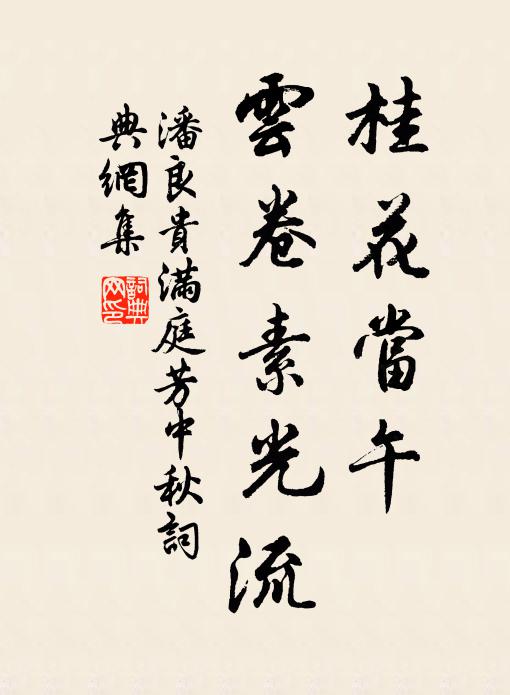 桂花當午
雲卷素光流
潘良貴滿庭芳中秋詞
典網集
詞典網印